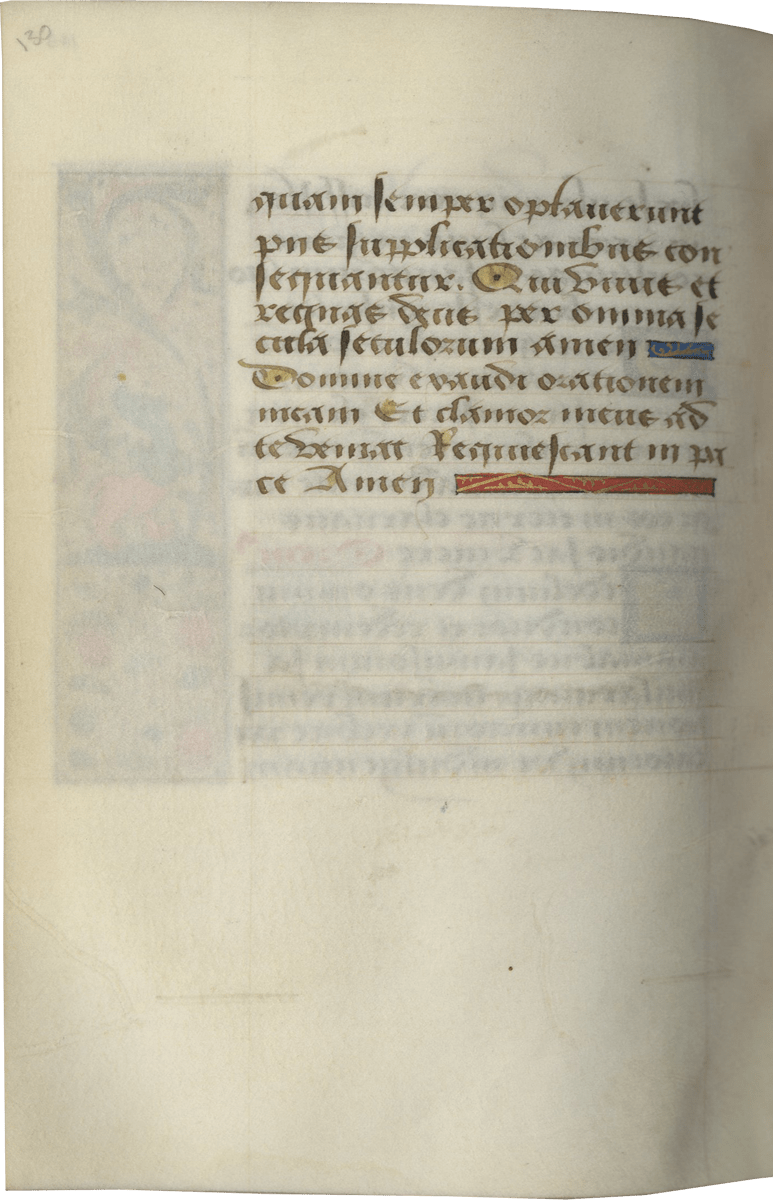 138
quam semper optauerunt
piis supplicationibus con
sequantur. Qui viuis et
regnas deus per omnia se
cula seculorum amen
Domine exaudi orationem
meam Et clamor meus ad
te veniat Requiescant in pa
ce Amen